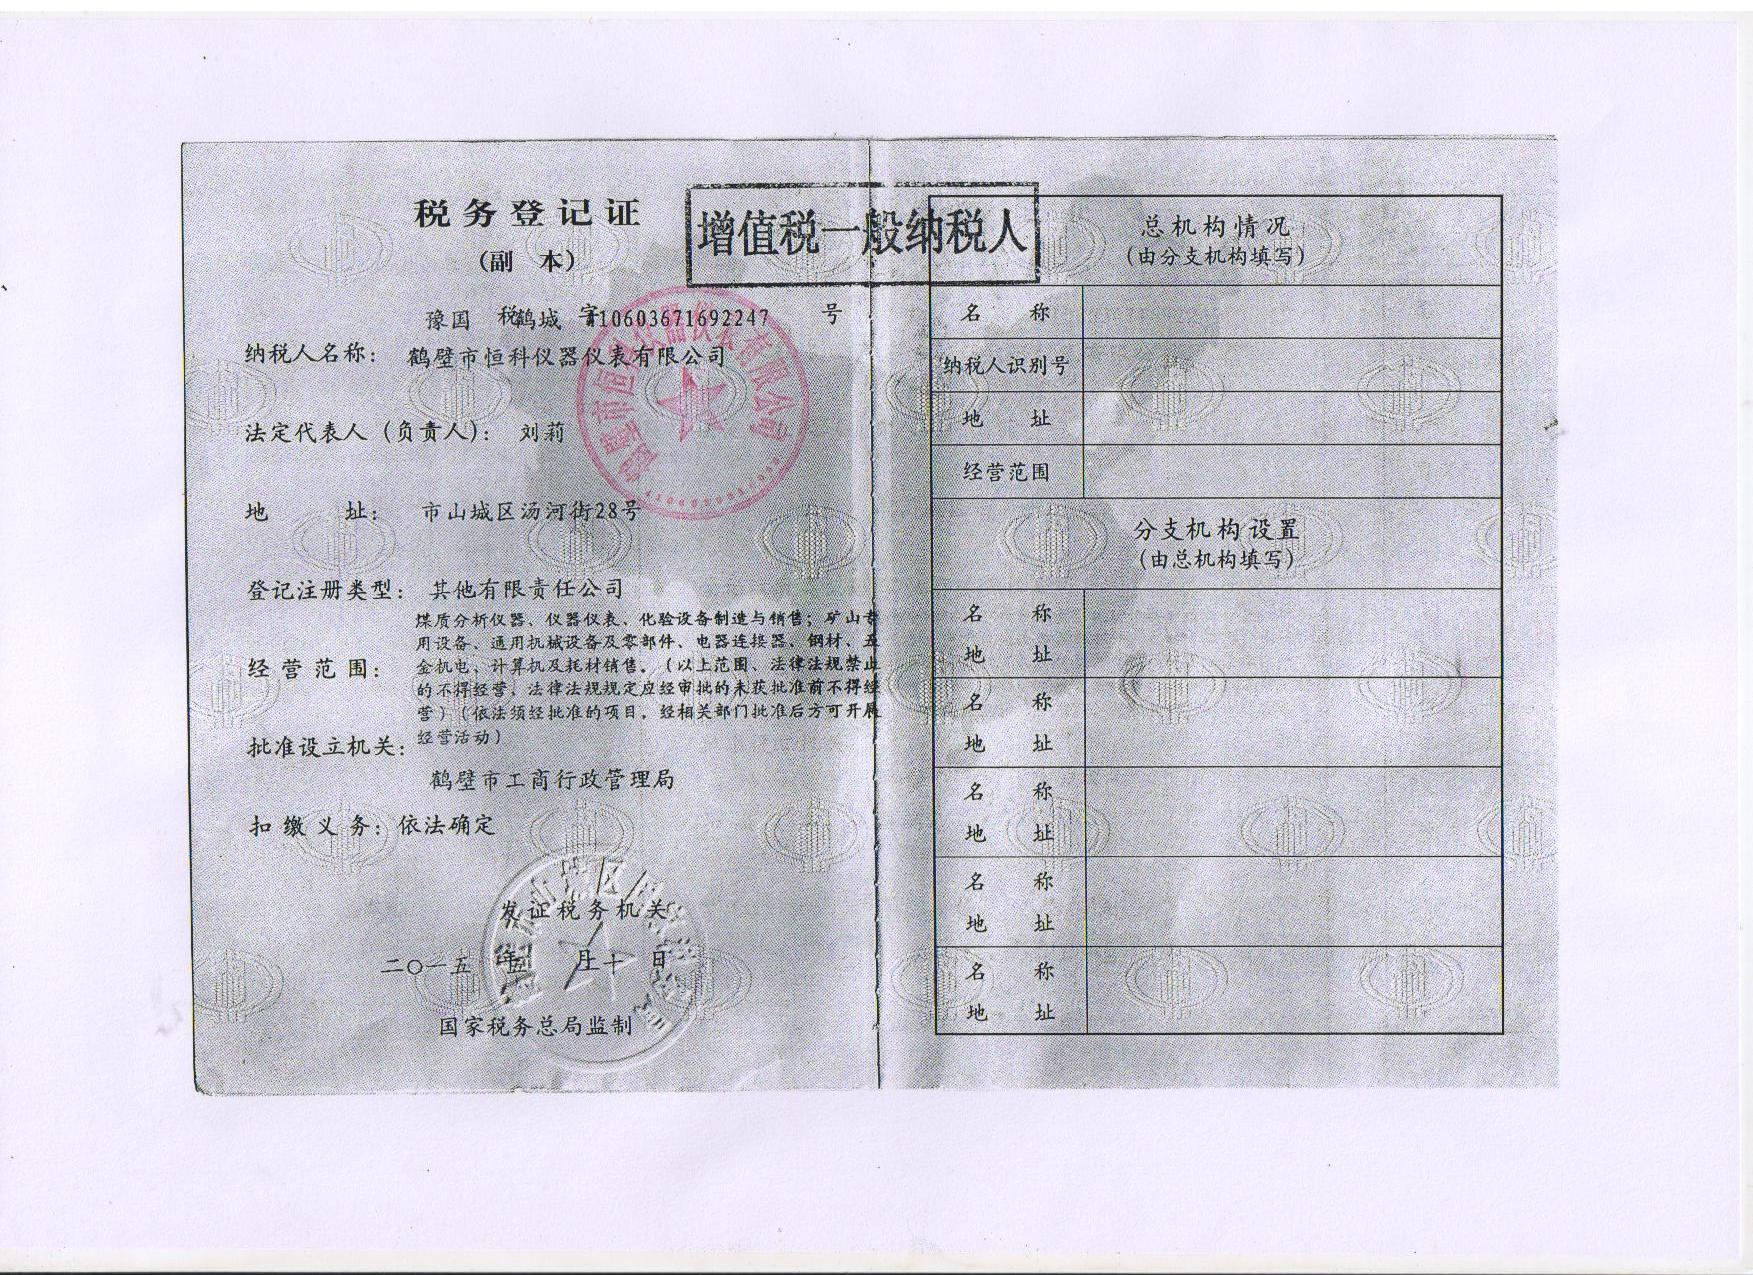 税务登记证
(副 本)
增值税一般纳税人
豫国 税鹤城 字410603671692247 号
纳税人名称： 鹤壁市恒科仪器仪表有限公司
法定代表人（负责人）： 刘莉
地 址： 市山城区汤河街28号
登记注册类型： 其他有限责任公司
经营范围：
煤质分析仪器、仪器仪表、化验设备制造与销售；矿山专
用设备、通用机械设备及零部件、电器连接器、钢材、五
金机电、计算机及耗材销售。（以上范围、法律法规禁止
的不得经营、法律法规规定应经审批的未获批准前不得经
营）（依法须经批准的项目，经相关部门批准后方可开展
经营活动）
批准设立机关：
鹤壁市工商行政管理局
扣缴义务：依法确定
发证税务机关
二〇一五 年 五 月 十 日
国家税务总局监制
鹤壁市恒科仪器仪表有限公司
总机构情况
(由分支机构填写)
名 称
纳税人识别号
地 址
经营范围
分支机构设置
(由总机构填写)
名 称
地 址
名 称
地 址
名 称
地 址
名 称
地 址
名 称
地 址